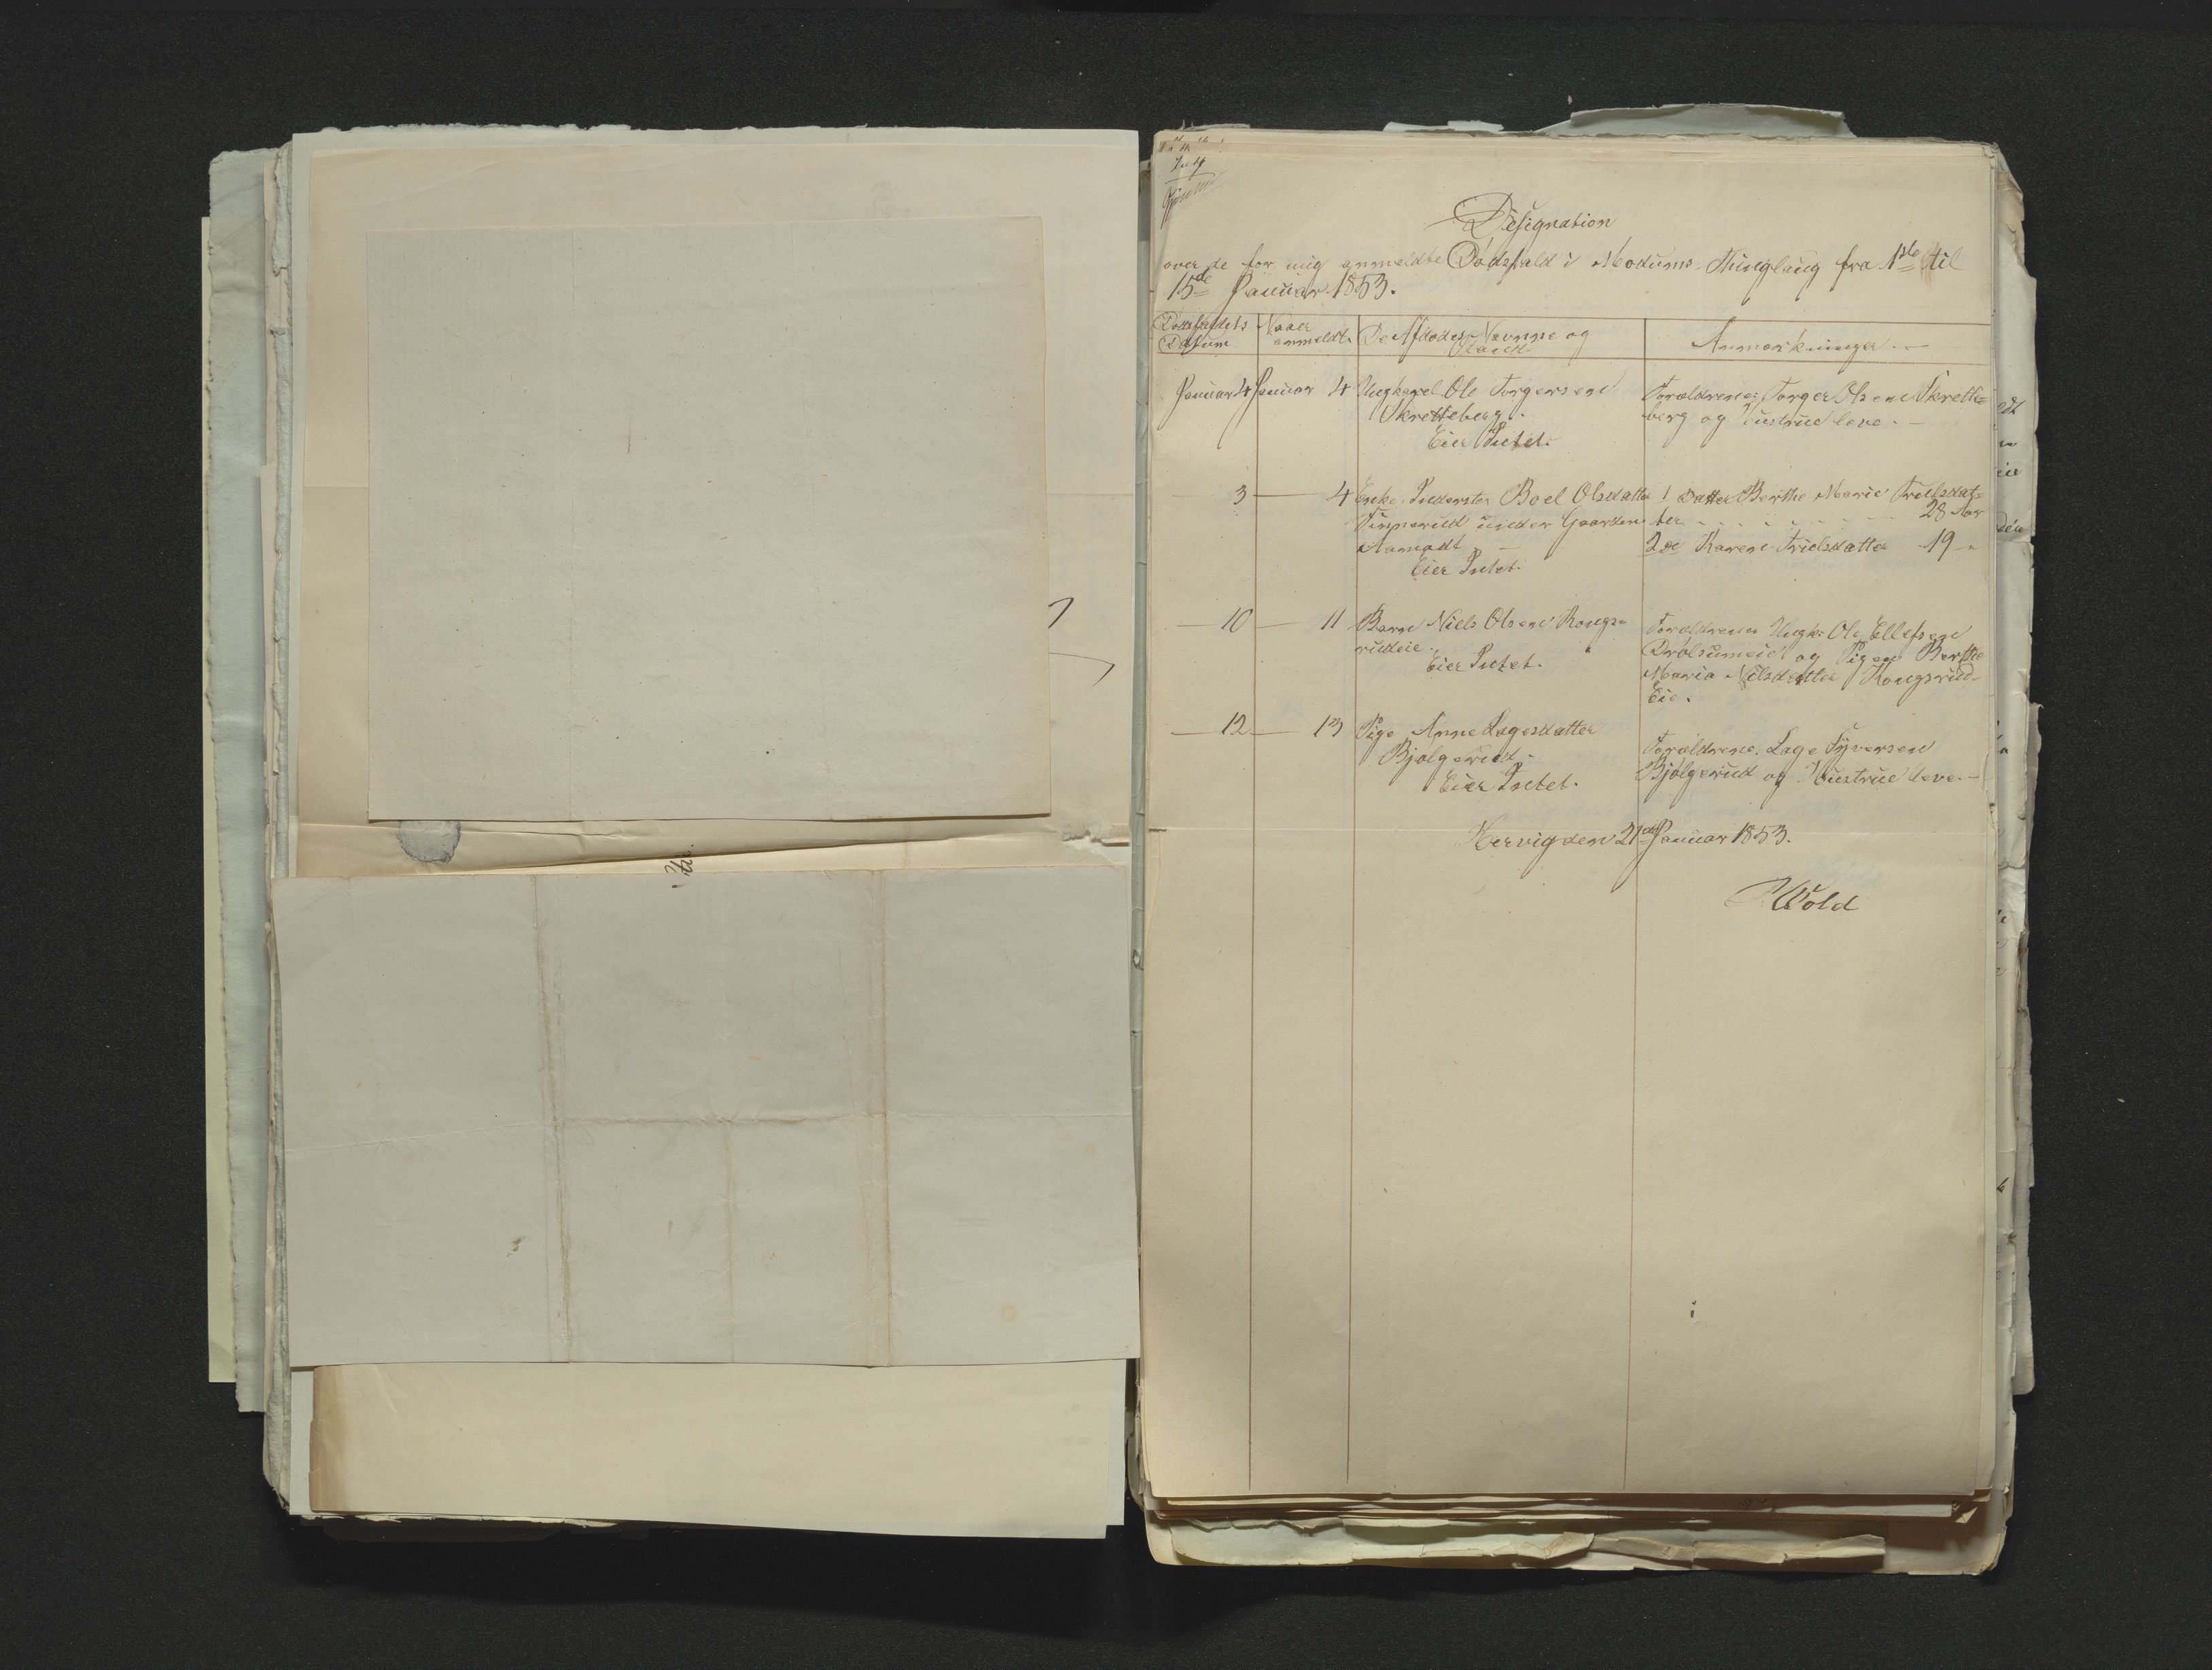 Designation
over de for mig anmeldte Dødsfald i Modums Thinglaug fra 1ste til
15de Januar 1853.
Dødsfaldets Datum
Naar anmeldt
De Afdødes Navne og Stand.
Anmærkninger
Januar 4 Januar 4 Ungkarl Ole Torgersen
Skretteberg.
Eier Intet.
Forældrene: Torger Olsen Skrette=
berg og Hustrue leve. -
3 — 4 Enke Inderster Boel Olsdatter
under Gaarden
Eier Intet.
1 Datter Berthe Marie Trulsdat=
ter 28 Aar
2 de Karen Truelsdatter 19 "
— 10 — 11 Barn Niels Olsen Kongs=
rudeie.
Eier Intet.
Forældrene Ungk: Ole Ellefsen
Drolsumeie og Pigen Berthe
Maria Nilsdatter Kongsrud=
Eie.
— 12 — 13 Pige Anne Lagesdatter
Bjølgerud.
Eier Intet.
Forældrene. Lage Syversen
Bjølgerud og Hustrue leve. -
Hervig den 21de Januar 1853.
Wold